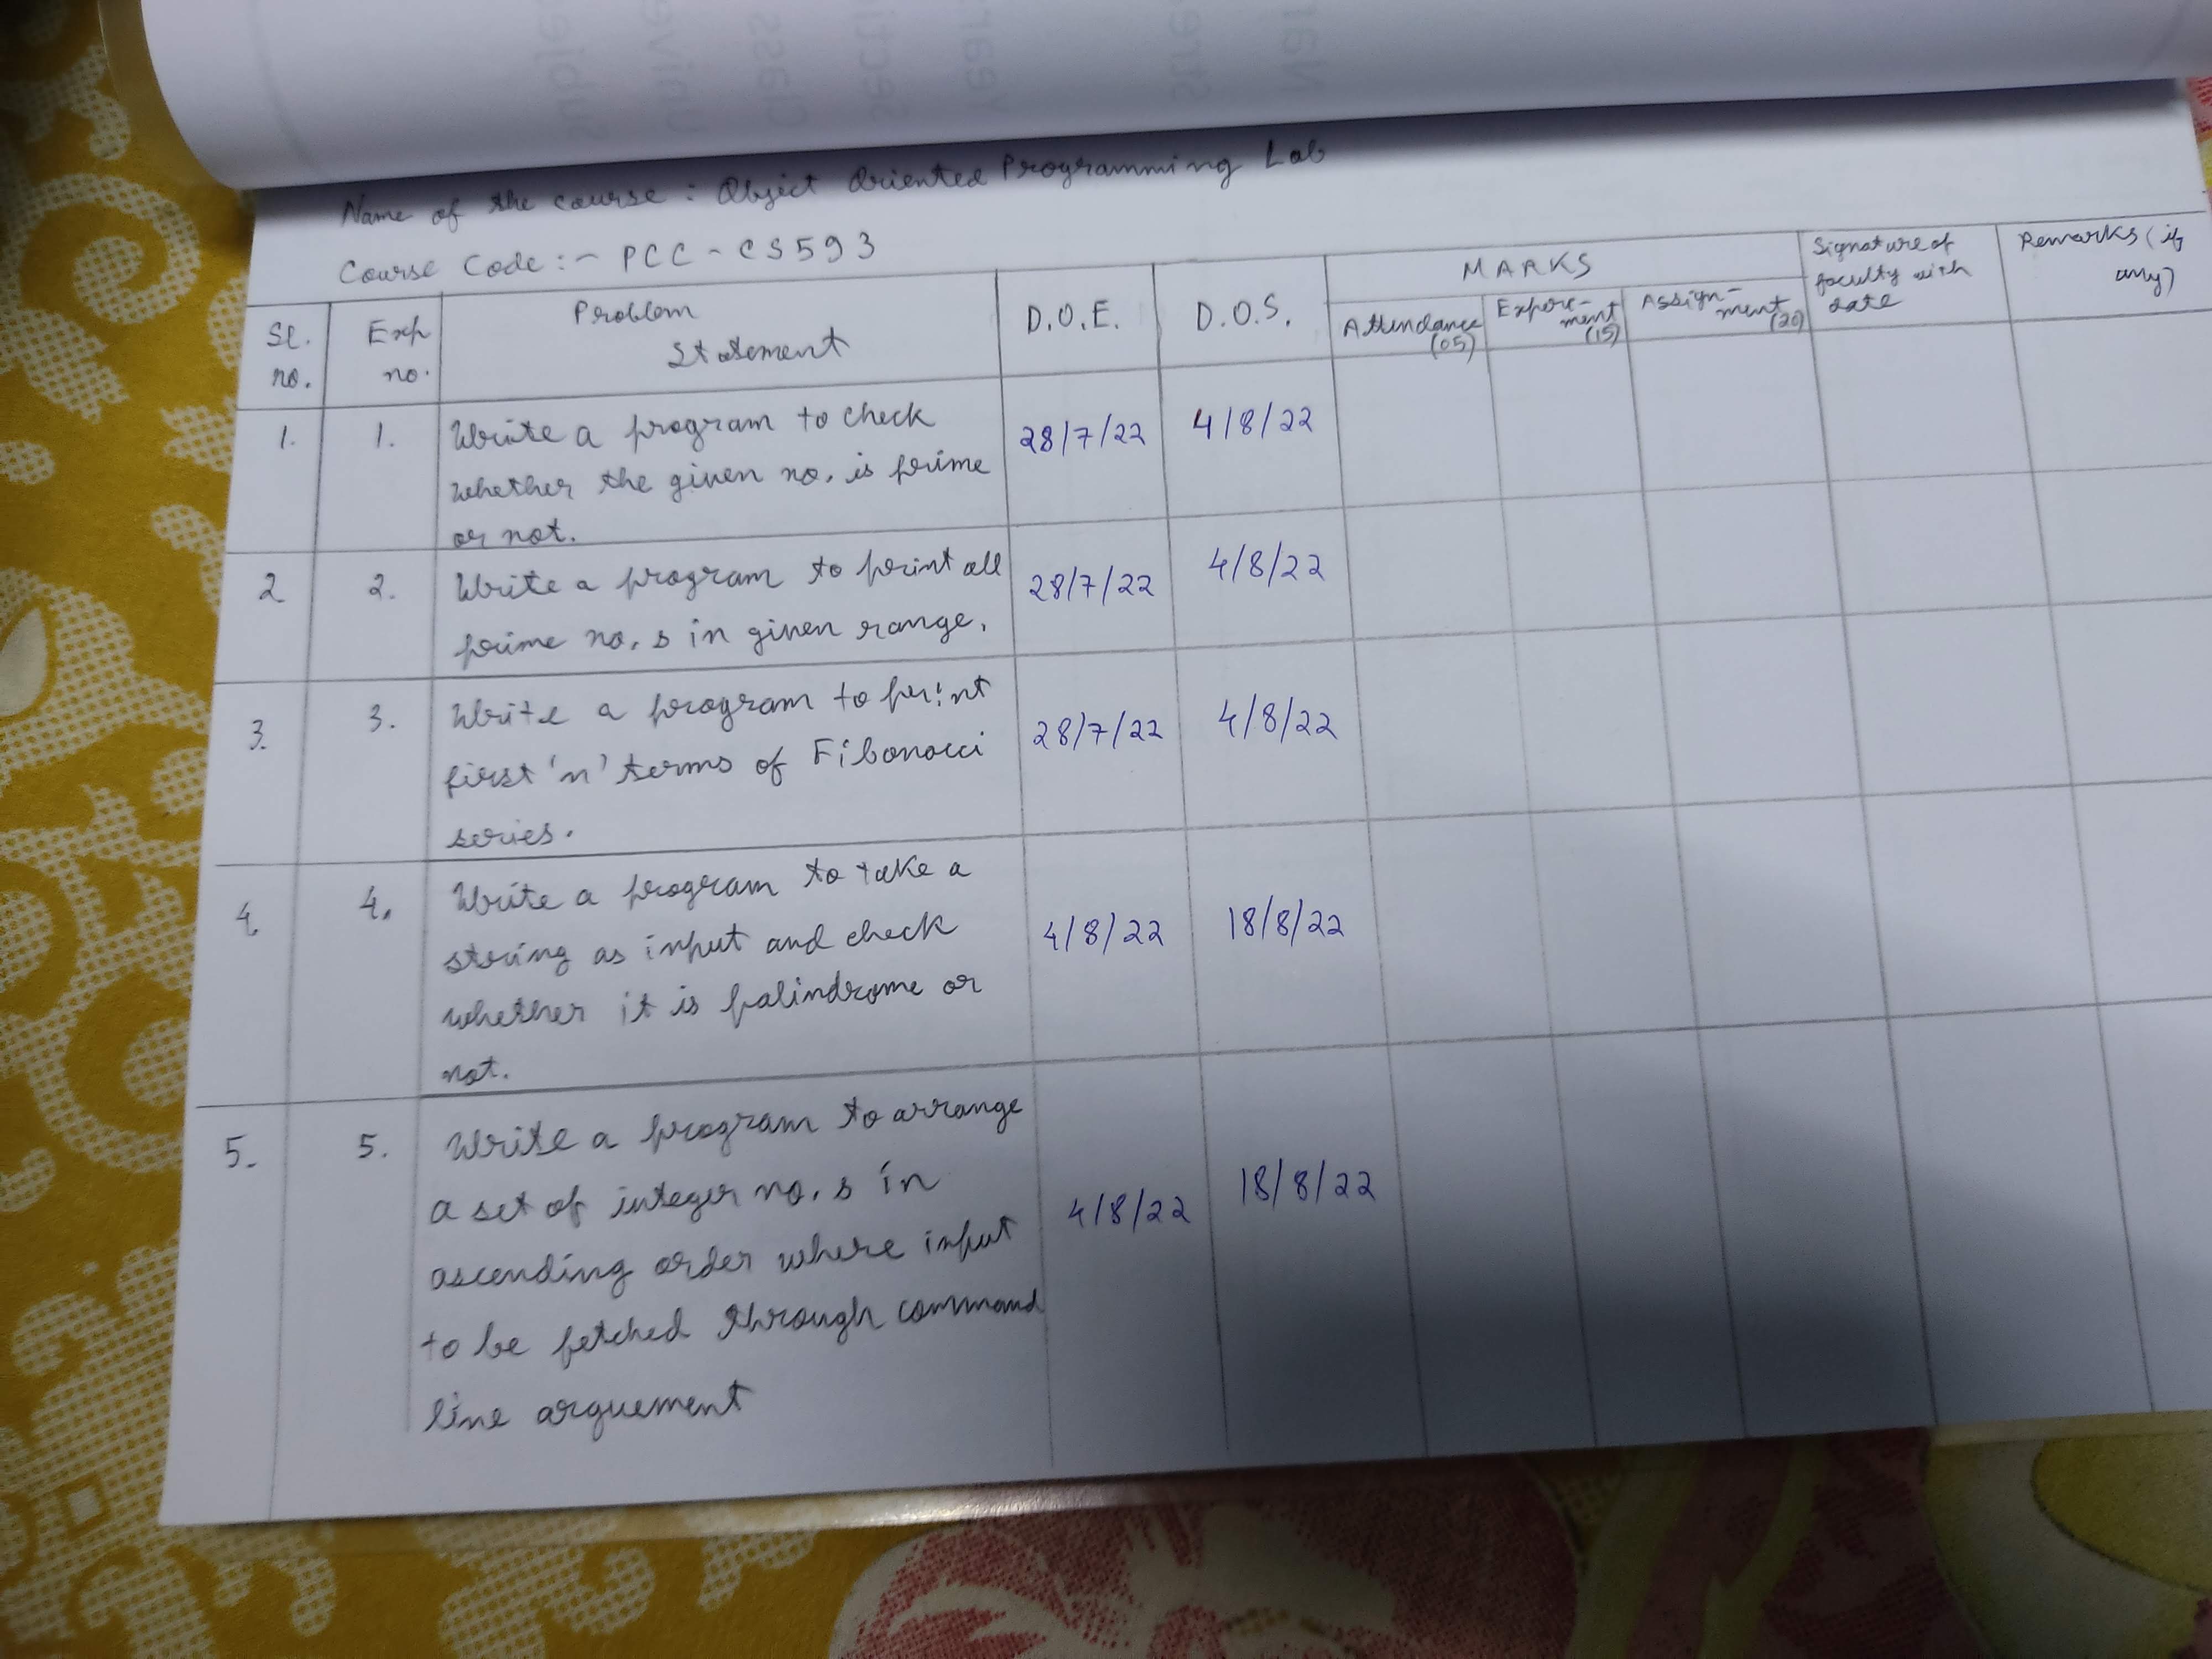 Name of the course : Object Oriented Programming Lab
Course Code :- PCC - CS593
Sl. no.
Exp no.
Problem Statement
D.O.E.
D.O.S.
MARKS
Attendance (05)
Experi-ment (15)
Assign-ment (20)
Signature of faculty with date
Remarks (if any)
1.
1.
Write a program to check
whether the given no. is prime
or not.
28/7/22
4/8/22
2
2.
Write a program to print all
prime no.s in given range.
28/7/22
4/8/22
3.
3.
Write a program to print
first 'n' terms of Fibonacci
series.
28/7/22
4/8/22
4.
4.
Write a program to take a
string as input and check
whether it is palindrome or
not.
4/8/22
18/8/22
5.
5.
Write a program to arrange
a set of integer no.s in
ascending order where input
to be fetched through command
line arguement
4/8/22
18/8/22